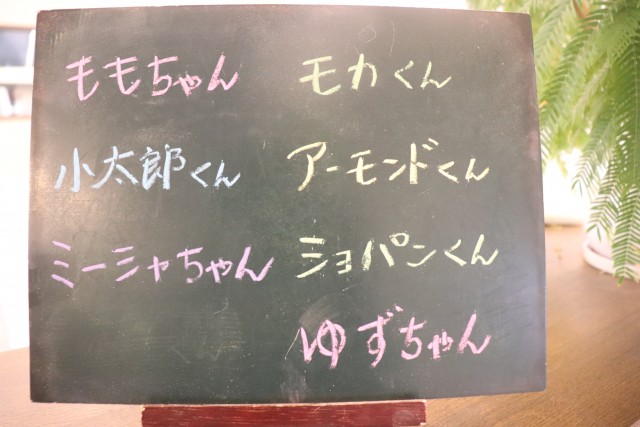 ももちゃん
小太郎くん
ミーシャちゃん
モカくん
アーモンドくん
ショパンくん
ゆずちゃん